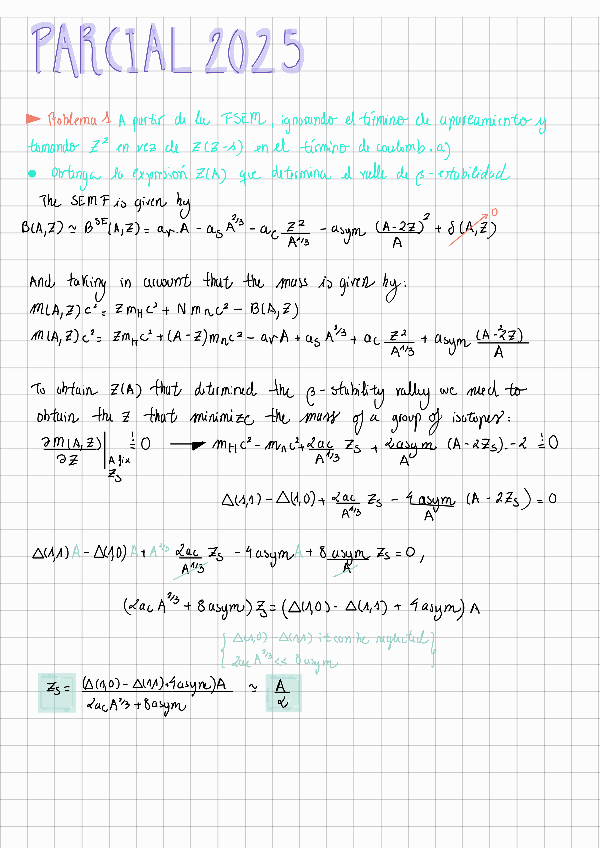 PARCIAL 2025
► Problema 1 A partir de la FSEM, ignorando el término de apareamiento y
tomando Z² en vez de Z(Z-1) en el término de coulomb. a)
• Obtenga la expresión Z(A) que determina el valle de β-estabilidad
The SEMF is given by
B(A,Z) ≈ B^SE(A,Z) = av·A - as A^2/3 - ac Z²/A^1/3 - asym (A-2Z)²/A + δ(A,Z) 0
And taking in account that the mass is given by:
m(A,Z)c² = Z mH c² + N mn c² - B(A,Z)
m(A,Z)c² = Z mH c² + (A-Z) mn c² - av A + as A^2/3 + ac Z²/A^1/3 + asym (A-2Z)²/A
To obtain Z(A) that determined the β-stability valley we need to
obtain the Z that minimize the mass of a group of isotopes:
∂m(A,Z)/∂Z |A fix Zs != 0 → mH c² - mn c² + 2ac/A^1/3 Zs + 2asym/A (A-2Zs)·-2 != 0
Δ(1,1) - Δ(1,0) + 2ac/A^1/3 Zs - 4asym/A (A-2Zs) = 0
Δ(1,1)A - Δ(1,0)A + A^2/3 2ac/A^1/3 Zs - 4asym A + 8 asym/A Zs = 0,
(2ac A^2/3 + 8asym) Zs = (Δ(1,0) - Δ(1,1) + 4asym) A
{ Δ(1,0) - Δ(1,1) it can be neglected }
{ 2ac A^2/3 << 8asym }
Zs = (Δ(1,0) - Δ(1,1) + 4asym)A / 2ac A^2/3 + 8asym ≈ A/2